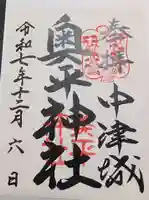 奉拝
中津城
奥平神社
令和七年十二月六日